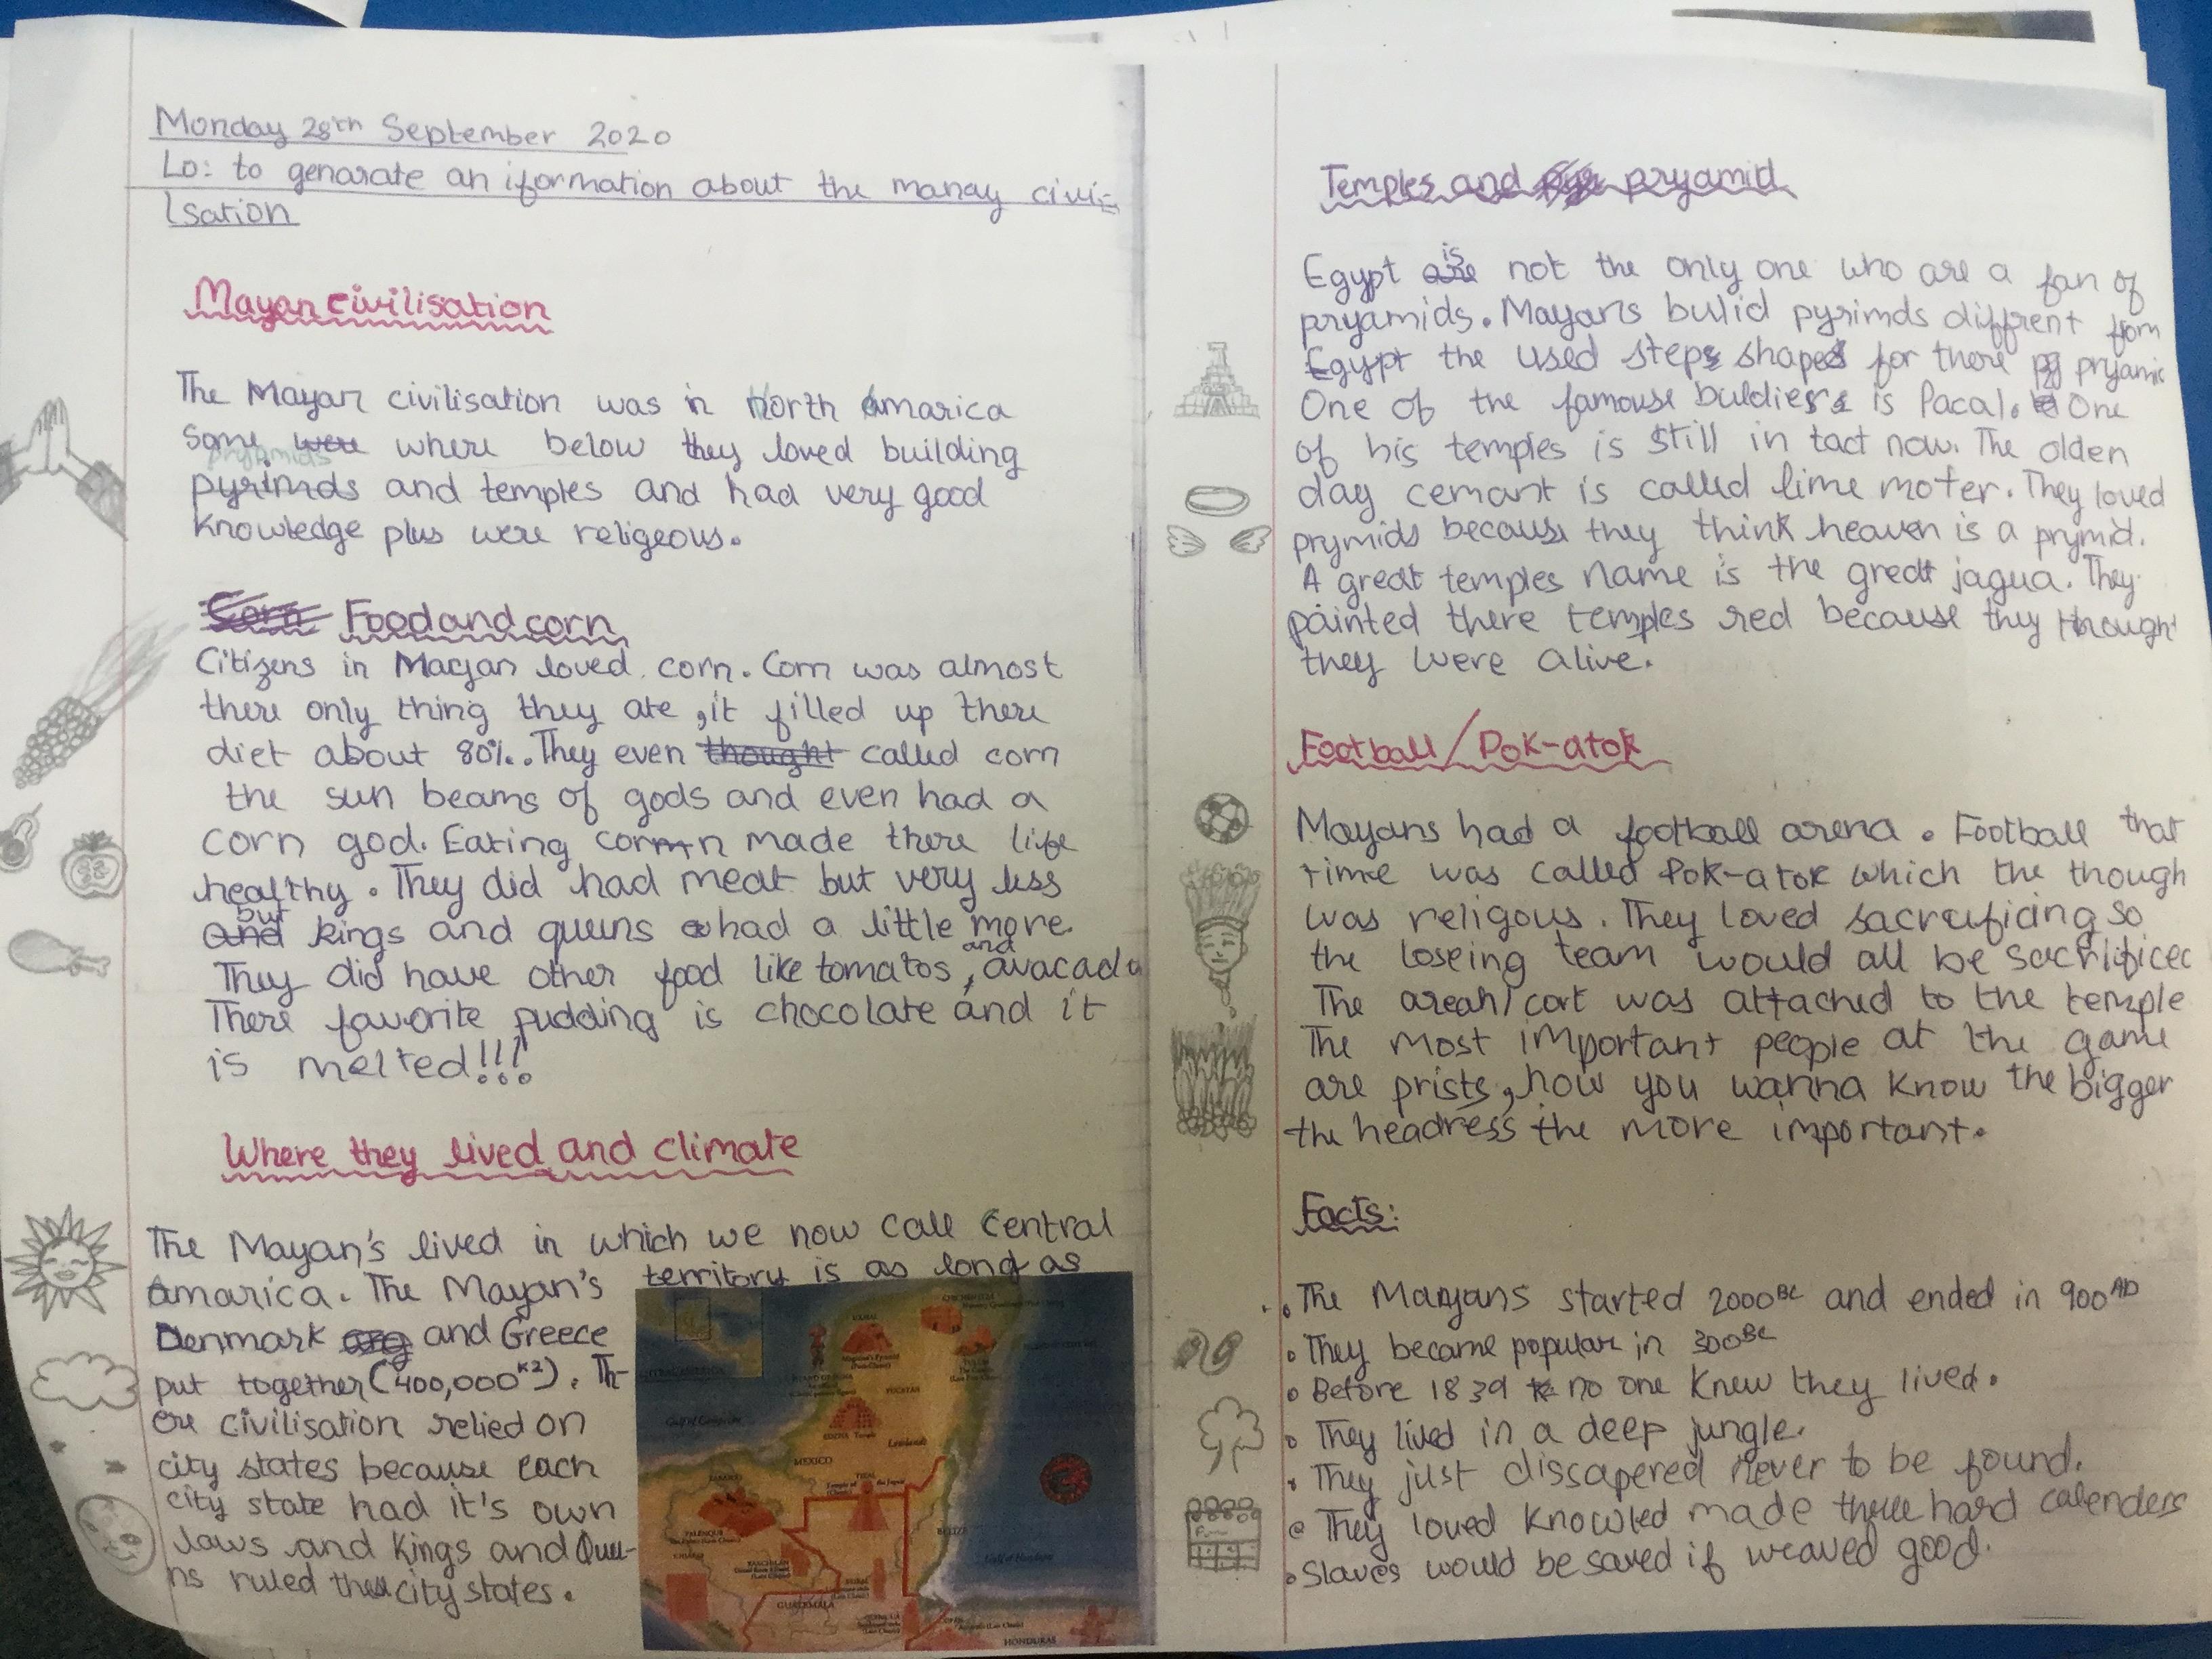 Monday 28th September 2020
Lo: to genarate an iformation about the manay civi-
lsation
Mayan civilisation
The Mayan civilisation was in North Amarica
some were where below they loved building
pryamids
pyrimds and temples and had very good
knowledge plus were religeous.
Corn Food and corn
Citizens in Mayan loved corn. Corn was almost
there only thing they ate, it filled up there
diet about 80%. They even thought called corn
the sun beams of gods and even had a
corn god. Eating corn made there life
healthy. They did had meat but very less
but
and kings and queens had a little more.
and
They did have other food like tomatos, avacado
There favorite pudding is chocolate and it
is melted!!!
Where they lived and climate
The Mayan's lived in which we now call Central
Amarica. The Mayan's territory is as long as
Denmark and Greece
put together (400,000K2). Th-
ere civilisation relied on
city states because each
city state had it's own
laws and Kings and Quee-
ns ruled these city states.
MEXICO
BELIZE
GUATEMALA
HONDURAS
Temples and pryamid
is
Egypt are not the only one who are a fan of
pryamids. Mayans bulid pyrimds diffrent from
Egypt the used steps shapes for there pryamid
One of the famouse buldiers is Pacal. One
of his temples is still in tact now. The olden
day cemant is called lime moter. They loved
prymids because they think heaven is a prymid.
A great temples name is the great jagua. They
painted there temples red because thy thought
they were alive.
Football/Pok-atok
Mayans had a football arena. Football that
time was called Pok-atok which the though
was religous. They loved sacraficing so
the loseing team would all be sacrificed
The areah/cort was attached to the temple
The most important people at the game
are prists, how you wanna know the bigger
the headress the more important.
Facts:
• The Mayans started 2000BC and ended in 900AD
• They became popular in 300BC
• Before 1839 no one knew they lived.
• They lived in a deep jungle.
• They just dissapered never to be found.
• They loved knowled made three hard calenders
• Slaves would be saved if weaved good.